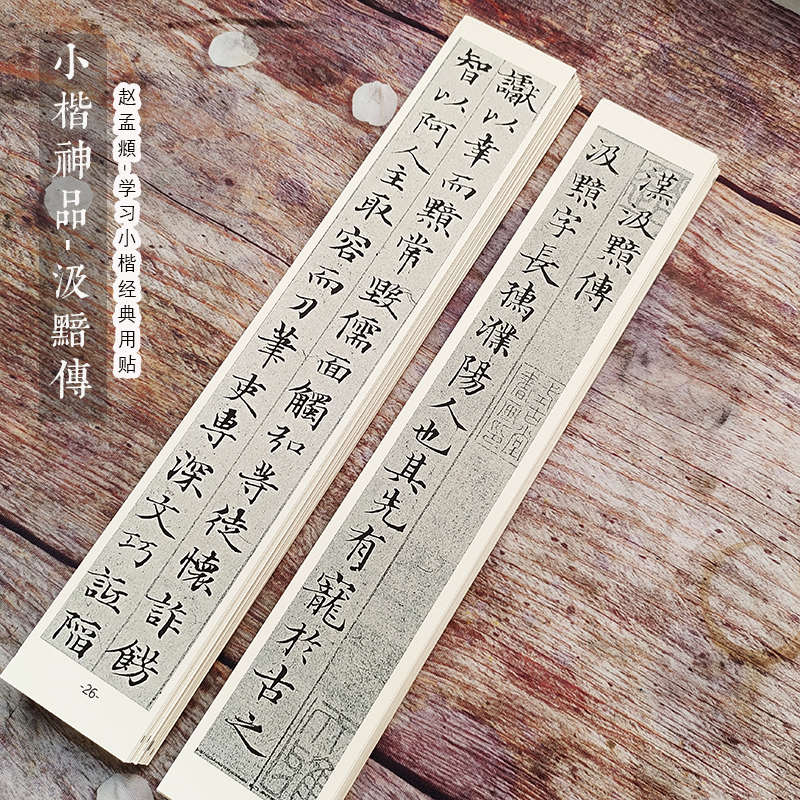 小楷神品-汲黯傳
赵孟頫-学习小楷经典用贴
讞以幸而黯常毀儒面觸弘等徒懷詐餙
智以阿人主取容而刀筆吏專深文巧詆陷
-26-
漢汲黯傳
汲黯字長孺濮陽人也其先有寵於古之